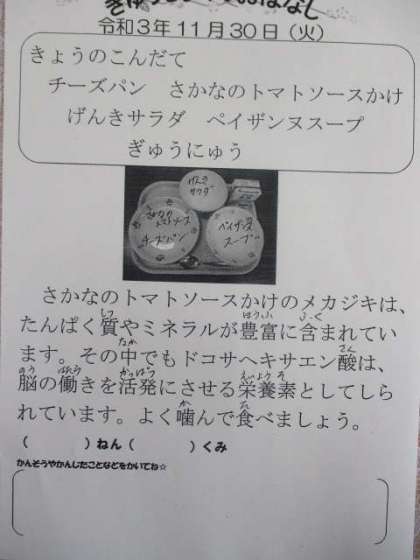 令和3年11月30日（火）
きょうのこんだて
チーズパン　さかなのトマトソースかけ
げんきサラダ　ペイザンヌスープ
ぎゅうにゅう
げんき
サラダ
さかなの
トマトソース
チーズパン
ペイザンヌ
スープ
さかなのトマトソースかけのメカジキは、
しつ　ほうふ　ふく
たんぱく質やミネラルが豊富に含まれてい
なか　さん
ます。その中でもドコサヘキサエン酸は、
のう　はたら　かっぱつ　えいようそ
脳の働きを活発にさせる栄養素としてしら
か　た
れています。よく噛んで食べましょう。
（　　　　）ねん（　　　　）くみ
かんそうやかんじたことなどをかいてね☆